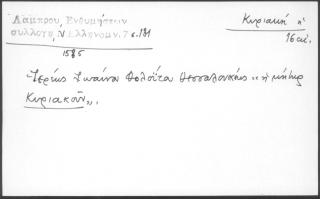 Λάμπρου, Ἐνθυμήσεων
συλλογή, Ν.Ἑλληνομν. 7 σ.181
Κυριακή ἡ
16 αἰ.
1585
Ἱερεὺς Ἰωάννου Θεσσαλονίκης " ἡ μήτηρ
Κυριακοῦ ".